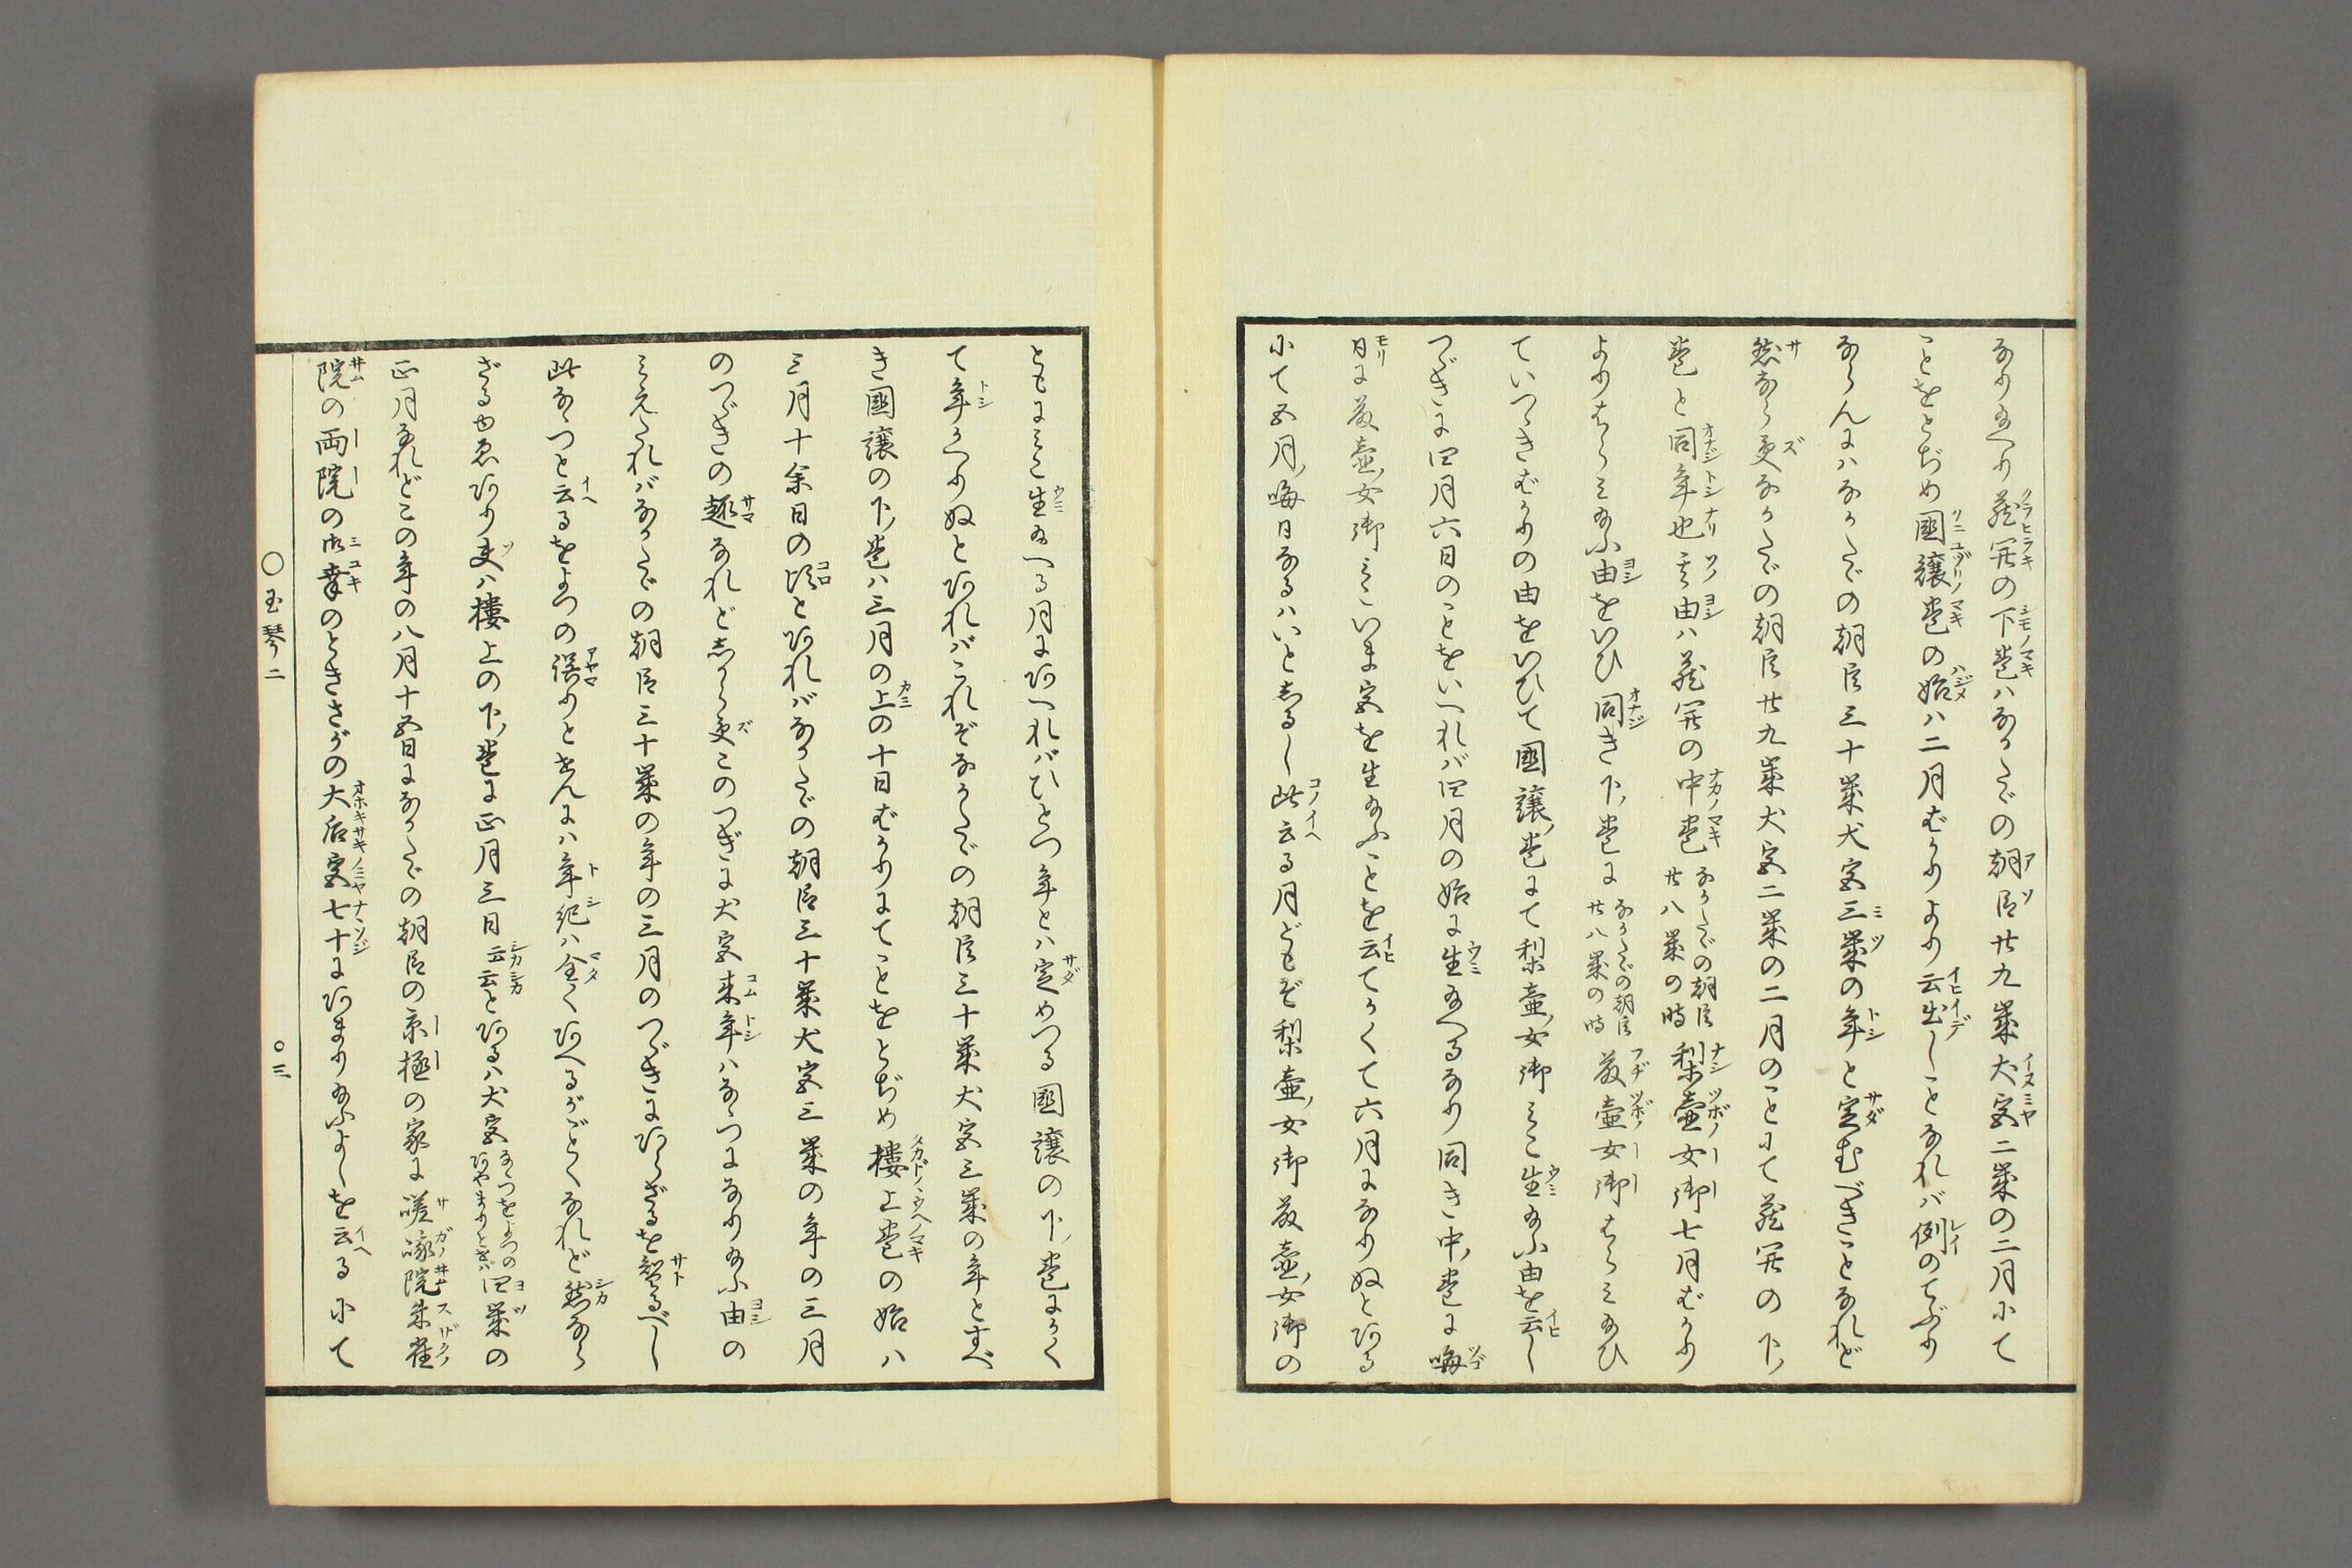 なり給へり蔵開の下巻ハなかたゞの朝臣廿九歳犬宮二歳の二月にて
ことをとぢめ國譲巻の始ハ二月むかりより云出しことなれバ例のてぶり
ならんにハなかたゞの朝臣三十歳犬宮三歳の年と定むべきことなれど
然なら更なかたゞの朝臣廿九歳犬宮二歳の二月のことにて蔵開の下
巻と同年也其由ハ蔵開の中巻なかたゞの朝臣廿八歳の時梨壺女御七月むかり
よりはらミ給ふ由をいひ同き下巻になかたゞの朝臣廿八歳の時藤壺女御はらミ給ひ
ていつゝきむかりの由をいひて國譲巻にて梨壺女御ミこ生給ふ由を云し
つゞきに四月六日のことをいへれバ四月の始に生給へるなり同き中巻に晦
日に藤壺女御ミこいま宮を生給ふことを云てかくて六月になりぬとある
にて五月晦日なるハいとしるし此云る月どもぞ梨壺女御藤壺女御の
ともにミこ生給へる月にあへれバひとつ年とハ定めつる國譲の下巻にかく
て年かへりぬとあれバこれぞなかたゞの朝臣三十歳犬宮三歳の年とすべ
き國譲の下巻ハ三月の上の十日むかりにてことをとぢめ樓上巻の始ハ
三月十余日の比とあれバなかたゞの朝臣三十歳犬宮三歳の年の三月
のつゞきの趣なれどしから更このつぎに犬宮来年ハなゝつになり給ふ由の
ミえたれバなかたゞの朝臣三十歳の年の三月のつゞきにあらざるを智るべし
此なゝつと云るをよつの誤りとせんにハ年紀ハ全くあへるがごとくなれど然なら
ざるゆゑあり更ハ樓上の下巻に正月三日云云とあるハ犬宮なゝつをよつのあやまりとせバ四歳の
正月なれどこの年の八月十五日になかたゞの朝臣の京極の家に嵯峨院朱雀
院の両院の御幸のときさがの大后宮七十にあまり給ふよしを云るにて
○玉琴二
○三